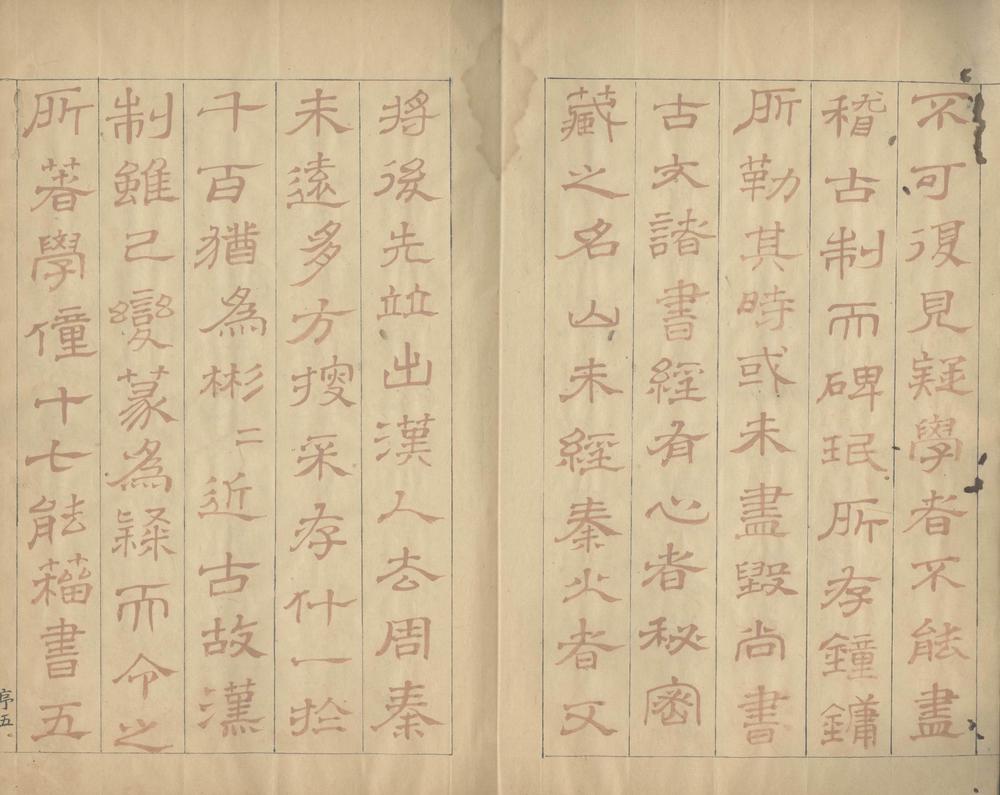 不可復見疑學者不能盡
稽古制而碑珉所存鐘鏞
所勒其時或未盡毀尚書
古文諸書經有心者秘密
藏之名山未經秦火者又
將後先竝出漢人去周秦
未遠多方搜采存什一於
千百猶為彬二近古故漢
制雖已變篆為隸而令之
所著學僮十七能籀書五
序五